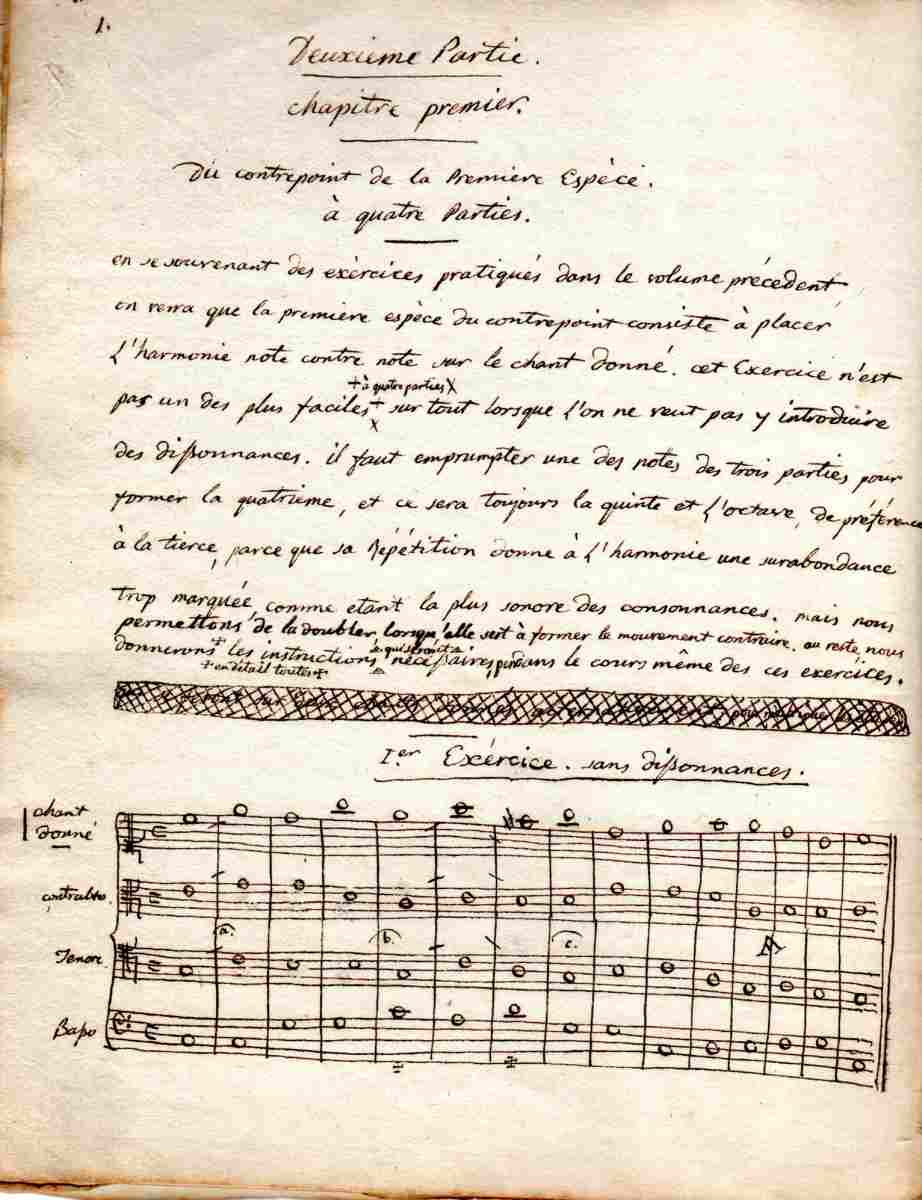 1.
Deuxieme Partie.
chapitre premier.
Du contrepoint de la Premiere Espèce.
à quatre Parties.
en se souvenant des exèrcices pratiqués dans le volume précedent,
on verra que la première espèce du contrepoint consiste à placer
l'harmonie note contre note sur le chant donné. cet Exercice n'est
+ à quatre parties X
pas un des plus faciles + sur tout lorsque l'on ne veut pas y introduire
X
des dißonnances. il faut emprumpter une des notes des trois parties pour
former la quatrième, et ce sera toujours la quinte et l'octave, de préférence
à la tierce, parce que sa répétition donne à l'harmonie une surabondance
trop marquée, comme etant la plus sonore des consonnances. mais nous
permettons de la doubler, lorsqu'elle sert à former le mouvement contraire. au reste, nous
donnerons + les instructions neceßaires, dans le cours même des ces exercices.
qui seront
+ en détail toutes +
Ier Exércice. sans dißonnances.
chant
donné
contralto
a. b. c.
Tenore
Baßo